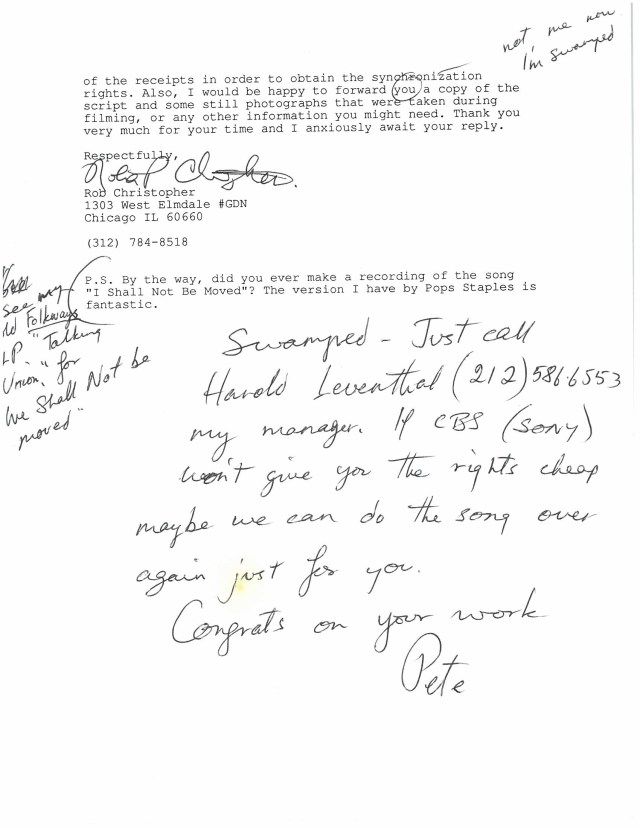 not me now
I'm swamped
of the receipts in order to obtain the synchronization
rights. Also, I would be happy to forward you a copy of the
script and some still photographs that were taken during
filming, or any other information you might need. Thank you
very much for your time and I anxiously await your reply.
Respectfully,
Rob Christopher
Rob Christopher
1303 West Elmdale #GDN
Chicago IL 60660
(312) 784-8518
P.S. By the way, did you ever make a recording of the song
"I Shall Not Be Moved"? The version I have by Pops Staples is
fantastic.
see my
old Folkways
LP "Talking
Union" for
We Shall Not be
moved"
Swamped - Just call
Harold Leventhal (212) 586-6553
my manager. If CBS (SONY)
won't give you the rights cheap
maybe we can do the song over
again just for you.
Congrats on your work
Pete